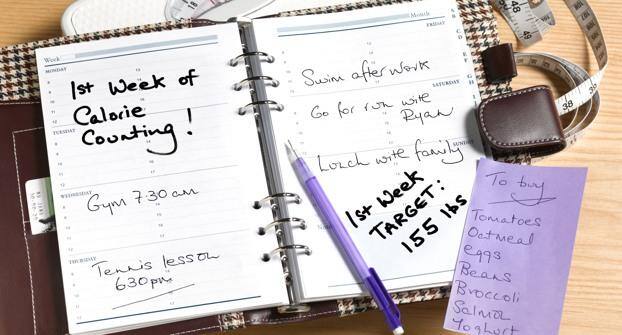 Week
MONDAY
1st Week of
Calorie
Counting!
TUESDAY
WEDNESDAY
Gym 7.30 am
THURSDAY
Tennis lesson
6.30pm
Month
FRIDAY
Swim after work
SATURDAY
Go for run with
Ryan
SUNDAY
Lunch with family
1st Week
TARGET:
155 lbs
To buy
Tomatoes
Oatmeal
eggs
Beans
Broccoli
Salmon
Yoghurt
38
39